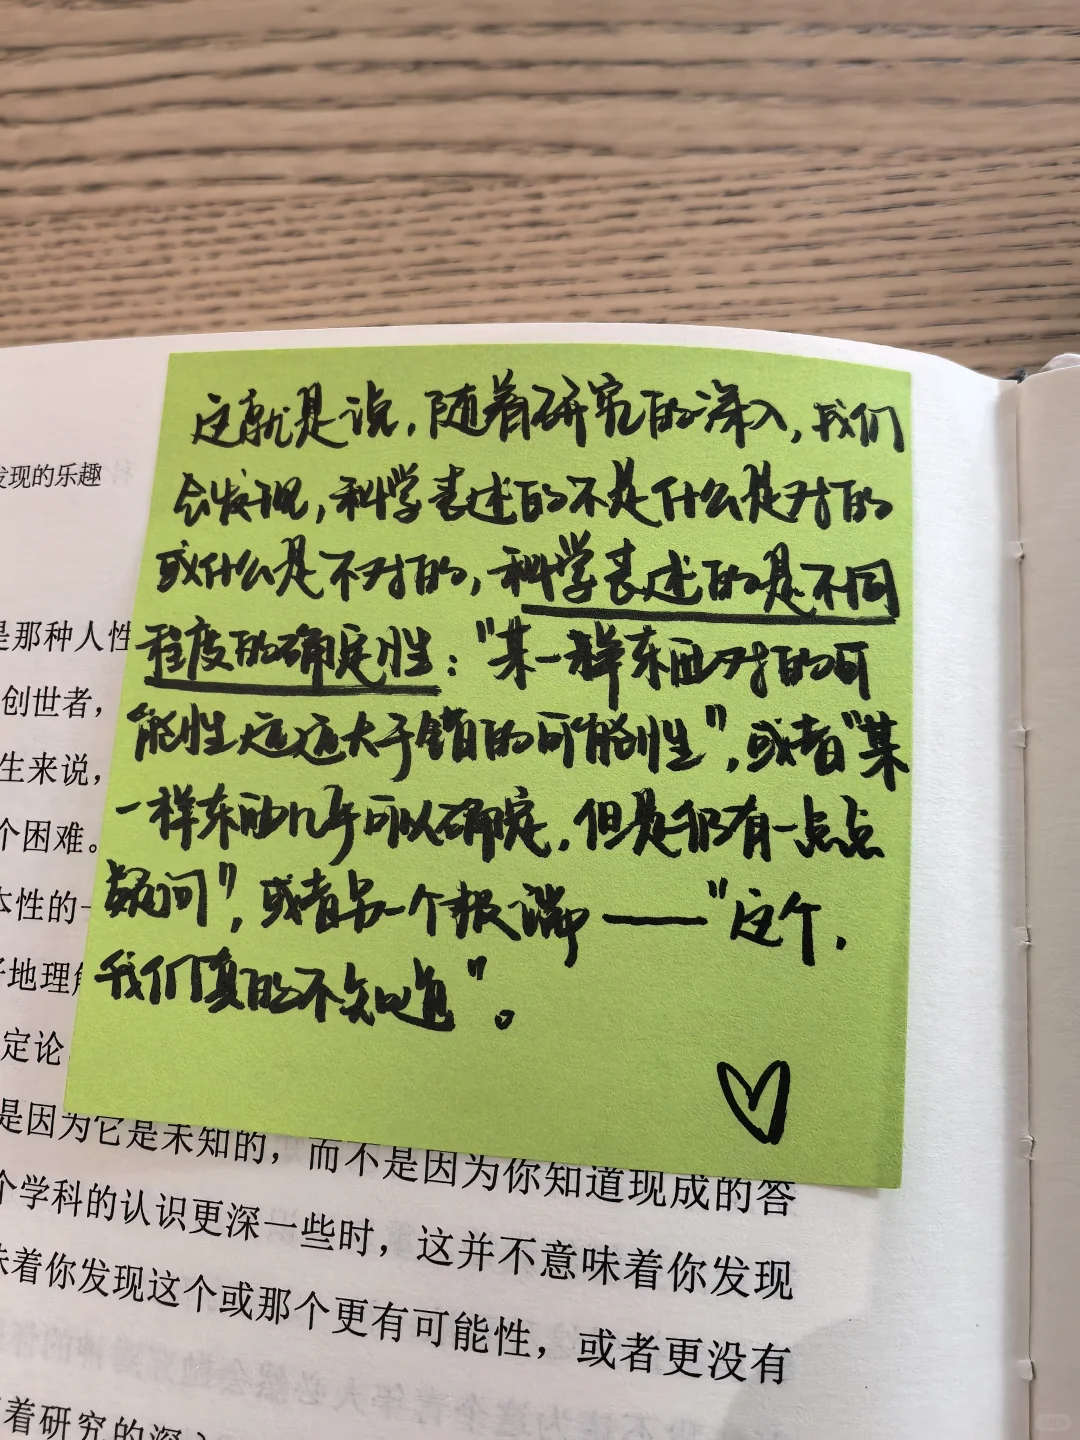 这就是说，随着研究的深入，我们
会发现，科学表述的不是什么是对的
或什么是不对的，科学表述的是不同
程度的确定性："某一样东西对的可
能性远远大于错的可能性"，或者"某
一样东西几乎可以确定，但是仍有一点点
疑问"，或者另一个极端——"这个，
我们真的不知道"。
发现的乐趣
是那种人性
创世者，
生来说，
个困难。
本性的一
好地理解
定论
是因为它是未知的，而不是因为你知道现成的答
个学科的认识更深一些时，这并不意味着你发现
味着你发现这个或那个更有可能性，或者更没有
着研究的深入